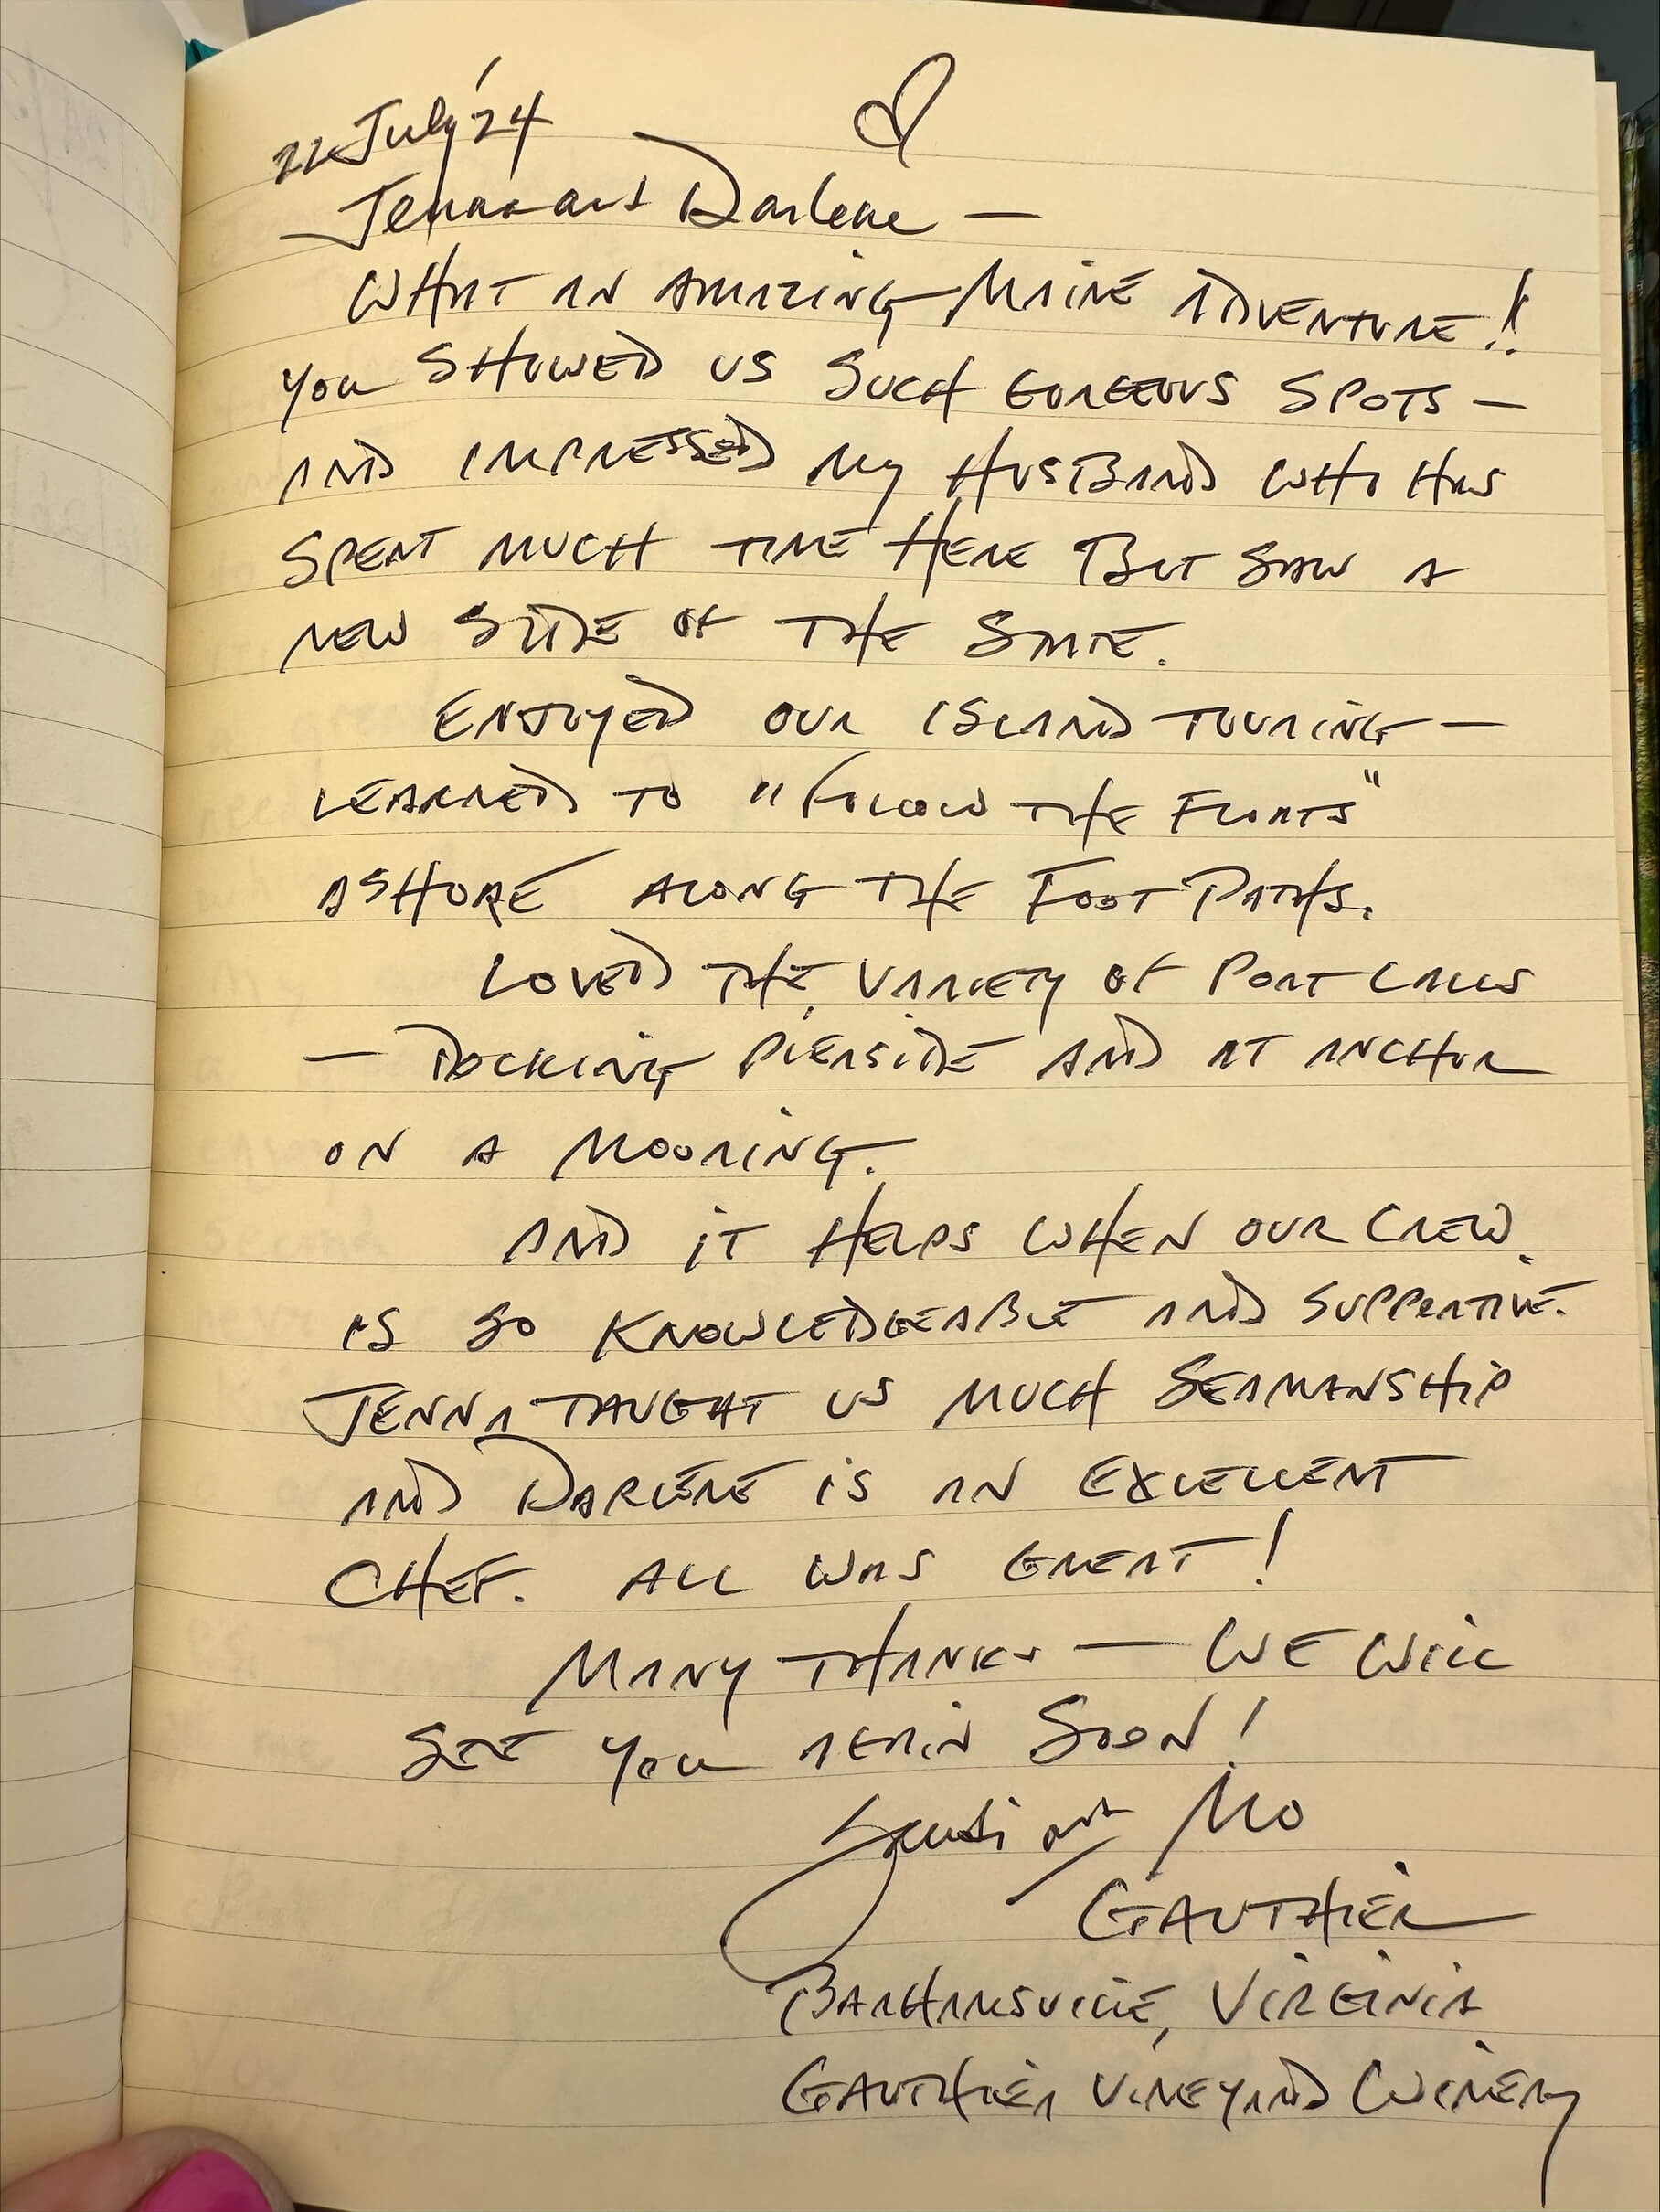 22 July '24
Jenna and Darlene —
WHAT AN AMAZING MAINE ADVENTURE!!
YOU SHOWED US SUCH GORGEOUS SPOTS —
AND IMPRESSED MY HUSBAND WHO HAS
SPENT MUCH TIME HERE BUT SAW A
NEW SIDE OF THE STATE.
ENJOYED OUR ISLAND TOURING —
LEARNED TO "FOLLOW THE FLOATS"
ASHORE ALONG THE FOOT PATHS.
LOVED THE VARIETY OF PORT CALLS
— DOCKING PIERSIDE AND AT ANCHOR
ON A MOORING.
AND IT HELPS WHEN OUR CREW
IS SO KNOWLEDGEABLE AND SUPPORTIVE.
JENNA TAUGHT US MUCH SEAMANSHIP
AND DARLENE IS AN EXCELLENT
CHEF. ALL WAS GREAT!
MANY THANKS — WE WILL
SEE YOU AGAIN SOON!
and Mo
GAUTHIER
BARHAMSVILLE, VIRGINIA
GAUTHIER VINEYARD WINERY